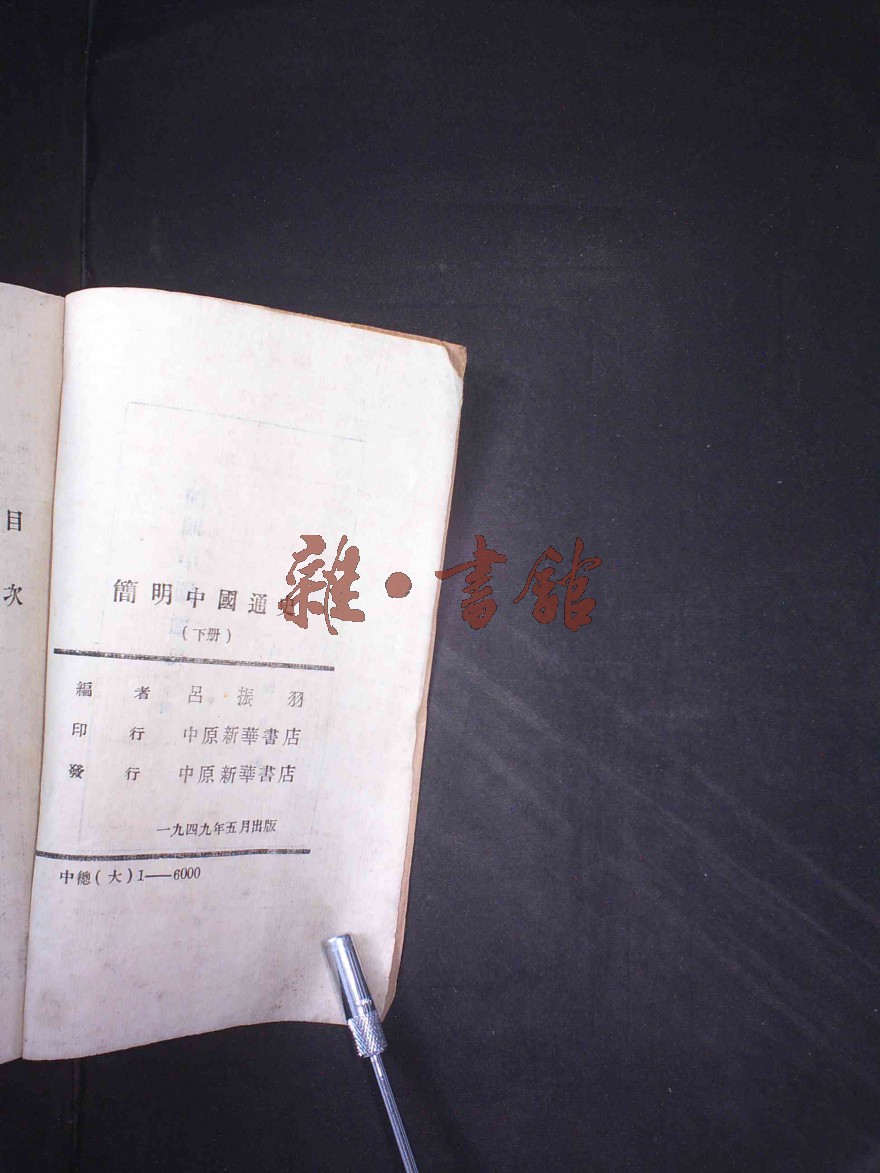 目次
簡明中國通史
(下册)
編者 呂振羽
印行 中原新華書店
發行 中原新華書店
一九四九年五月出版
中總(大)1——6000
雜·書館